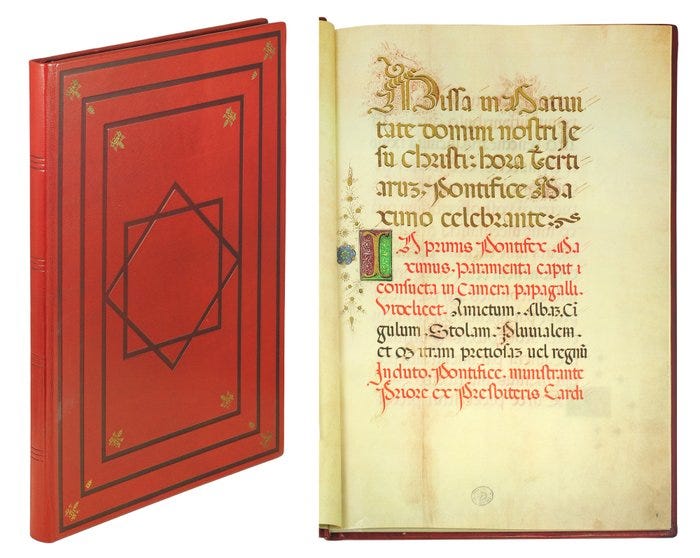 Missa in Natiui
tate domini nostri Je
su Christi: hora Terti
aruz. Pontifice Ma
ximo celebrante:
IN primis Pontifex Ma
ximus. paramenta capit i
consueta in Camera papagalli.
Videlicet. Amictum. Albaz. Cĩ
gulum. Stolam. Pluuialem.
et Mitram pretiosaz uel regnũ
Induto. Pontifice. ministrante
Priore ex Presbiteris Cardi